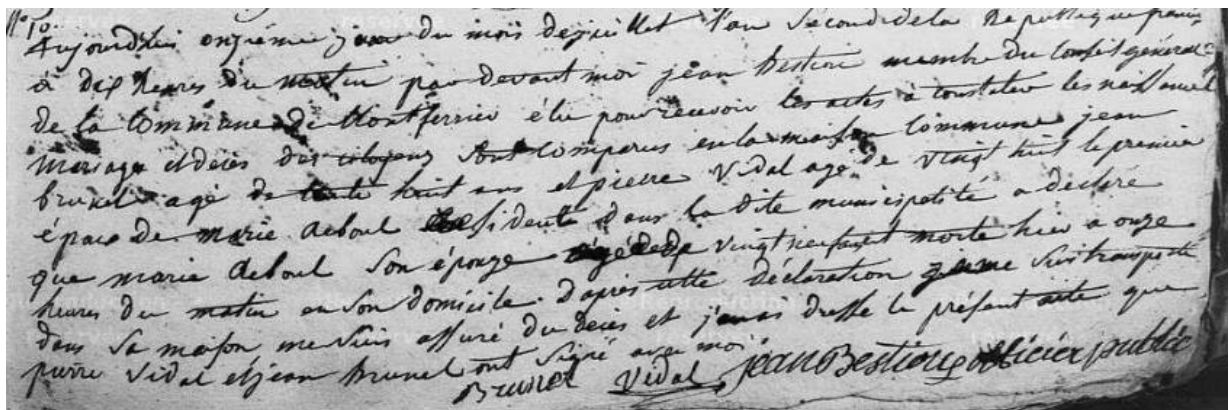 n° 10
Aujourdhui onzieme jour du mois dejuillet l'an Second dela Republique
à dix heures du matin par devant moi jean Bestion membre du Conseil général
de la Commune de Montferrier élu pour recevoir les actes à constater les naissances
Mariages et deces des citoyens Sont Comparus en la maison Commune jean
brunel agé de trente huit ans et pierre Vidal agé de vingt huit le premier
époux de marie Reboul Residente dans la dite municipalité a declaré
que marie Reboul Son épouze agée de vingt neuf est morte hier a onze
heures du matin en Son domicile. d'après cette déclaration je me Suis transporté
dans Sa maison me Suis assuré du deces et j'en ai dressé le présent acte que
pierre Vidal et jean Brunel ont Signé avec moi
Brunel Vidal jean Bestion officier public